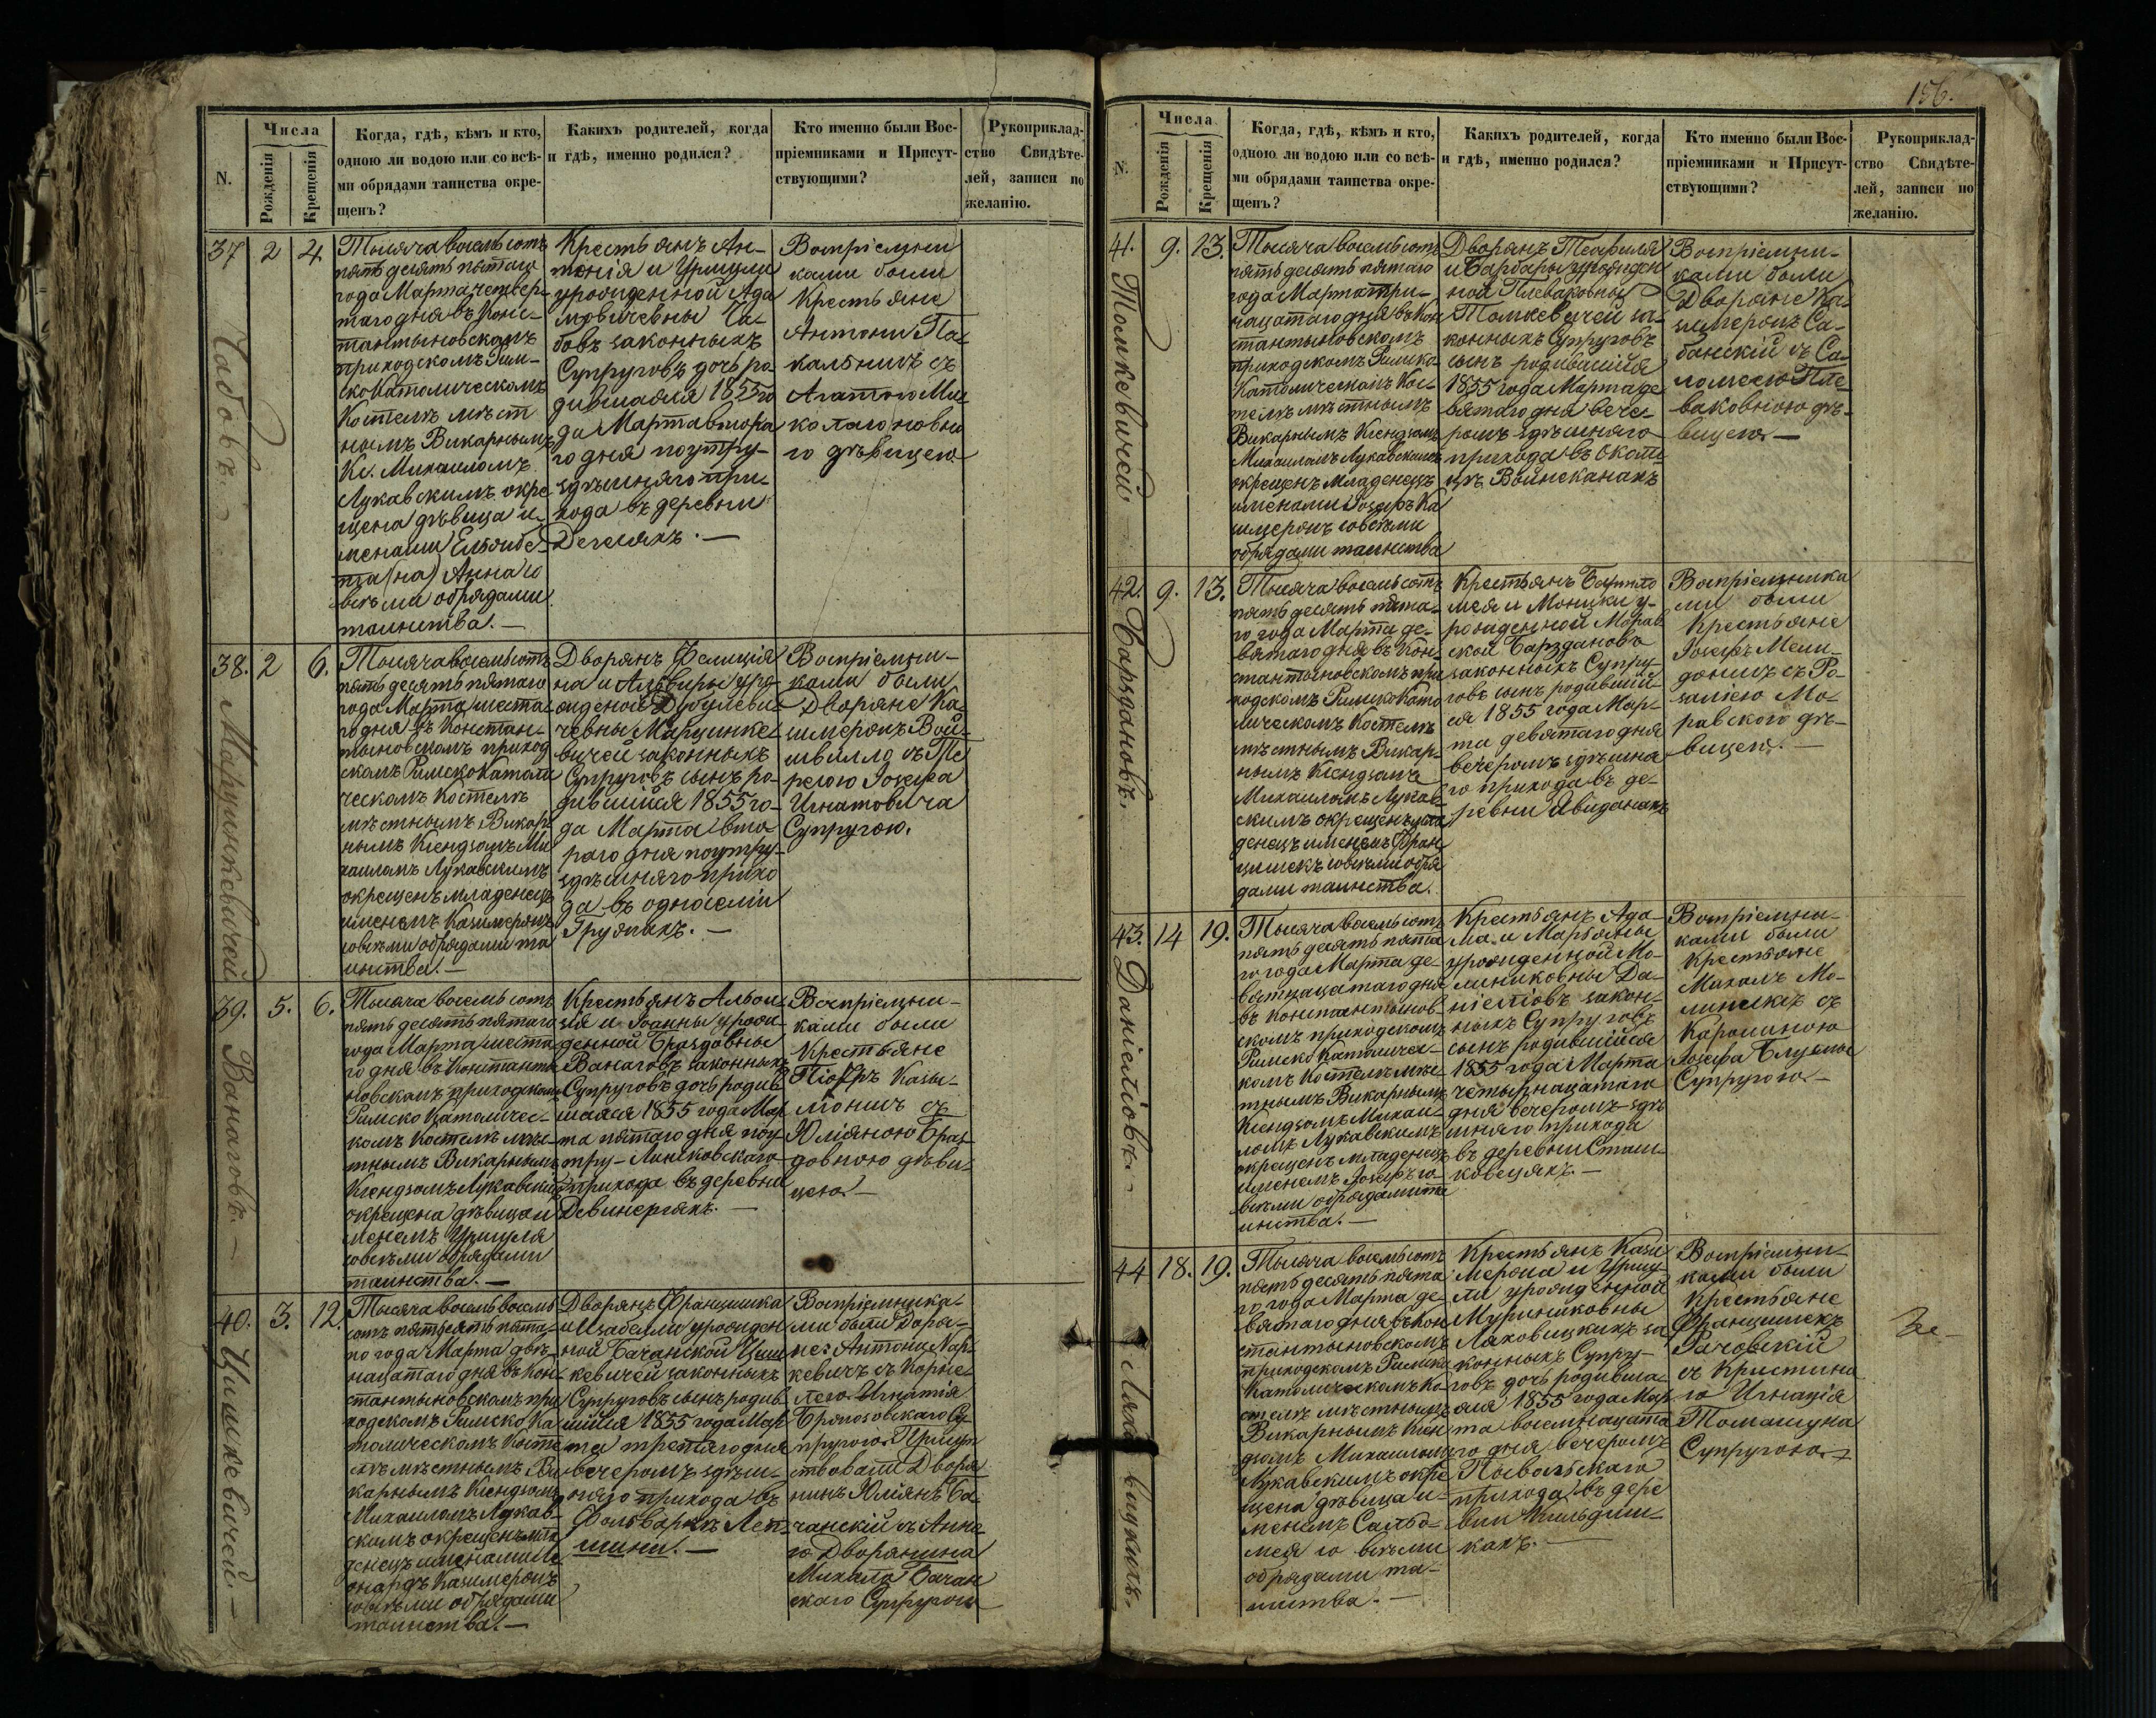 N.
Числа
Рожденія
Крещенія
Когда, гдѣ, кѣмъ и кто,
одною ли водою или со всѣ-
ми обрядами таинства окре-
щенъ?
Какихъ родителей, когда
и гдѣ, именно родился?
Кто именно были Вос-
пріемниками и Присут-
ствующими?
Рукоприклад-
ство Свидѣте-
лей, записи по
желанію.
37
2
4.
Чабовъ.
Тысяча восемьсотъ
пятьдесятъ пятаго
года Марта четвер-
таго дня въ Конс-
тантыновскомъ
приходскомъ Рим-
скоКатолическомъ
Костелѣ мѣст
нымъ Викарнымъ
Кс. Михаиломъ
Лукавскимъ окре
щена дѣвица и-
менами Ельжбе-
та (на) Анна со
всѣми обрядами
таинства.—
Крестьянъ Ан-
тонія и Уршули
урожденной Ада
мовичевны Ча-
бовъ законныхъ
Супруговъ дочь ро
дившаяся 1855 го
да Марта втора
го дня поутру-
здѣшняго при-
хода въ деревни
Дегсняхъ.—
Воспріемни
ками были
Крестьяне
Антони Па-
кальнишъ съ
Агатою Ми-
колаюновно
ю дѣвицею.—
38.
2
6.
Марцинкевичей
Тысяча восемьсотъ
пятьдесятъ пятаго
года Марта шеста
го дня въ Констан-
тыновскомъ приход
скомъ РимскоКатоли
ческомъ Костелѣ
мѣстнымъ Викар
нымъ Ксендзомъ Ми
хаиломъ Лукавскимъ
окрещенъ младенецъ
именемъ Казимержъ
совсѣми обрядами та
инства.—
Дворянъ Фелиція
на и Альвиры уро-
жденой Довулеви-
чевны Марцинке-
вичей законныхъ
Супруговъ сынъ ро-
дившійся 1855 го-
да Марта вто-
раго дня поутру
здѣшняго прихо
да въ односеліи
Груяныхъ.—
Воспріемни-
ками были
Дворяне Ка-
зимержъ Вой-
швилло съ Те
ресою Іозефа
Игнатовича
Супругою.
39.
5.
6.
Ванаговъ.—
Тысяча восемьсотъ
пятьдесятъ пятаго
года Марта шеста
го дня въ Константы
новскомъ приходскомъ
Римско Католичес-
комъ Костелѣ мѣс-
тнымъ Викарнымъ
Ксендзомъ Лукавским
окрещена дѣвица и
менемъ Уршуля
совсѣми обрядами
таинства.—
Крестьянъ Альои-
зія и Іоанны урож-
денной Браздовны
Ванаговъ законныхъ
Супруговъ дочь родив
шаяся 1855 года Мар
та пятаго дня поу
тру- Линковскаго
прихода въ деревни
Девинергяхъ.—
Воспріемни-
ками были
Крестьяне
Піотръ Казы-
монишъ съ
Юліяною Браз-
довною дѣви-
цею—
40.
3.
12.
Цишкевичей.—
Тысяча восемь восемь
сотъ пятьдесятъ пята-
го года Марта двѣ-
нацатаго дня въ Кон-
стантыновскомъ при
ходскомъ Римско Ка
толическомъ Косте
лѣ мѣстнымъ Ви-
карнымъ Ксендзомъ
Михаиломъ Лукав-
скимъ окрещенъ мла
денецъ именами Ле
онардъ Казимержъ
совсѣми обрядами
таинства.—
Дворянъ Францишка
и Изабелли урожден
ной Бачанской Циш
кевичей законныхъ
Супруговъ сынъ родив
шійся 1855 года Мар
та третяго дня
вечеромъ здѣш-
няго прихода въ
Фольваркѣ Леп-
шини.—
Воспріемника-
ми были Дворя-
не: Антони Нар-
кевичъ съ Корне-
лею Игнатія
Супругою. Присут
ствовали Дворя
нинъ Юліянъ Ба-
чанскій съ Анно
ю Дворянина
Михаила Бачан
скаго Супругою
156.
N.
Числа
Рожденія
Крещенія
Когда, гдѣ, кѣмъ и кто,
одною ли водою или со всѣ-
ми обрядами таинства окре-
щенъ?
Какихъ родителей, когда
и гдѣ, именно родился?
Кто именно были Вос-
пріемниками и Присут-
ствующими?
Рукоприклад-
ство Свидѣте-
лей, записи по
желанію.
41.
9.
13.
Томкевичей
Тысяча восемьсотъ
пятьдесятъ пятаго
года Марта три-
нацатаго дня въ Кон
стантыновскомъ
приходскомъ Римско
Католическомъ Кос-
телѣ мѣстнымъ
Викарнымъ Ксендзомъ
Михаиломъ Лукавскимъ
окрещенъ младенецъ
именами Іозефъ Ка
зимержъ совсѣми
обрядами таинства
Дворянъ Теофиля
и Барбары урожден
ной Плеваковны
Томкевичей за-
конныхъ Супруговъ
сынъ родившійся
1855 года Марта де
вятаго дня вече-
ромъ здѣшняго
прихода въ Околи
цѣ Войнеканахъ
Воспріемни-
ками были
Дворяне Ка-
зимержъ Са-
банскій съ Са-
ломеею Пле-
ваковною дѣ-
вицею.—
42.
9.
13.
Барздановъ.
Тысяча восемьсотъ
пятьдесятъ пята-
го года Марта де-
вятаго дня въ Кон-
стантыновскомъ при
ходскомъ РимскоКато
лическомъ Костелѣ
мѣстнымъ Викар-
нымъ Ксендзомъ
Михаиломъ Лукав-
скимъ окрещенъ мла
денецъ именемъ Фран
цишекъ совсѣми обря
дами таинства.
Крестьянъ Бартло
мея и Моники у-
рожденной Морав
ской Барздановъ
законныхъ Супру-
говъ сынъ родивший
ся 1855 года Мар-
та девятаго дня
вечеромъ здѣшня
го прихода въ де-
ревни Явиданахъ
Воспріемника
ми были
Крестьяне
Іозефъ Мели-
донишъ съ Ро-
заліею Мо-
равского дѣ-
вицею.—
43.
14
19.
Даніеліовъ.—
Тысяча восемьсотъ
пятьдесятъ пята
го года Марта де-
вятнацатаго дня
въ Константынов-
скомъ приходскомъ
Римско Католичес-
комъ Костелѣ мѣс-
тнымъ Викарнымъ
Ксендзомъ Михаи-
ломъ Лукавскимъ
окрещенъ младенецъ
именемъ Іозефъ со
всѣми обрядами та
инства.—
Крестьянъ Ада-
ма и Марьяны
урожденной Мо-
линиковны Да-
ніеліовъ закон-
ныхъ Супруговъ
сынъ родившійся
1855 года Марта
четырнацатаго
дня вечеромъ здѣ
шняго прихода
въ деревни Сташ-
ковецяхъ.—
Воспріемни-
ками были
Крестьяне
Михалъ Мо-
линикъ съ
Каролиною
Іозефа
Супругою—
44
18.
19.
Ляховицкихъ.
Тысяча восемьсотъ
пятьдесятъ пята
го года Марта де-
вятаго дня въ Кон
стантыновскомъ
приходскомъ Римско
Католическомъ Ко-
стелѣ мѣстнымъ
Викарнымъ Ксен
дзомъ Михаиломъ
Лукавскимъ окре
щена дѣвица и-
менемъ Сальо-
мея со всѣми
обрядами та-
инства.—
Крестьянъ Кази
мержа и Уршу-
ли урожденной
Муриниковны
Ляховицкихъ за
конныхъ Супру-
говъ дочь родивша-
яся 1855 года Мар
та восемнацата
го дня вечеромъ
Поевольскаго
прихода въ дере
вни Кильдиш-
кахъ.—
Воспріемни-
ками были
Крестьяне
Францишекъ
Рачовскій
съ Кристино
ю Игнація
Томашуна
Супругою.